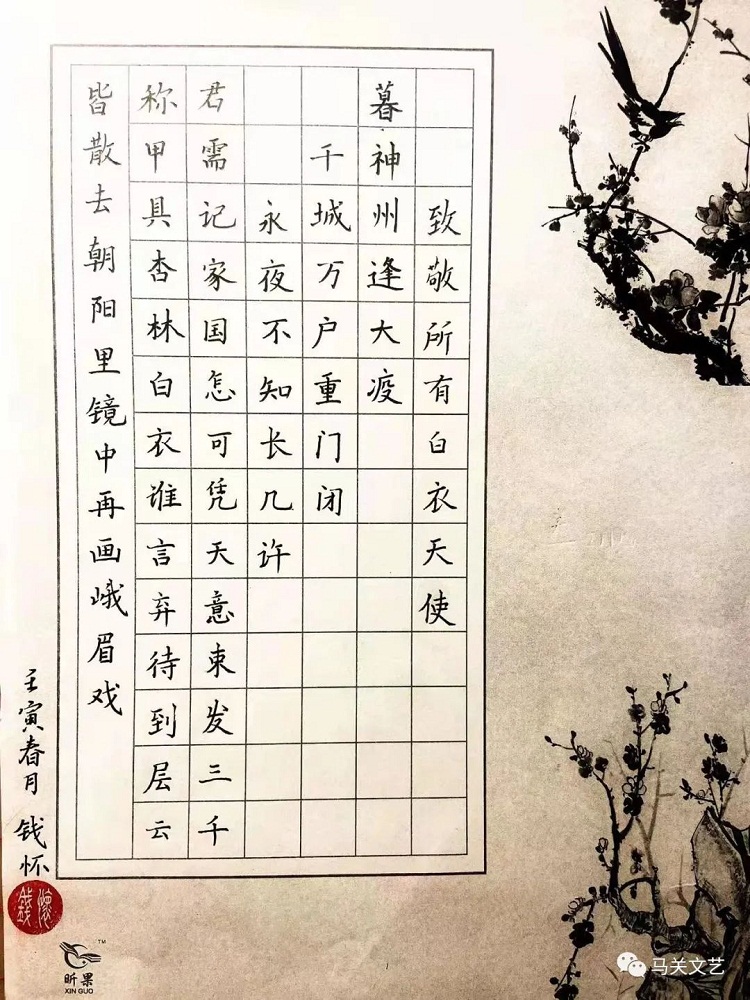 致敬所有白衣天使
暮神州逢大疫
千城万户重门闭
永夜不知长几许
君需记家国怎可凭天意束发三千
称甲具杏林白衣谁言弃待到层云
皆散去朝阳里镜中再画峨眉戏
壬寅春月 钱怀
錢懷
昕果
XIN GUO
TM
马关文艺